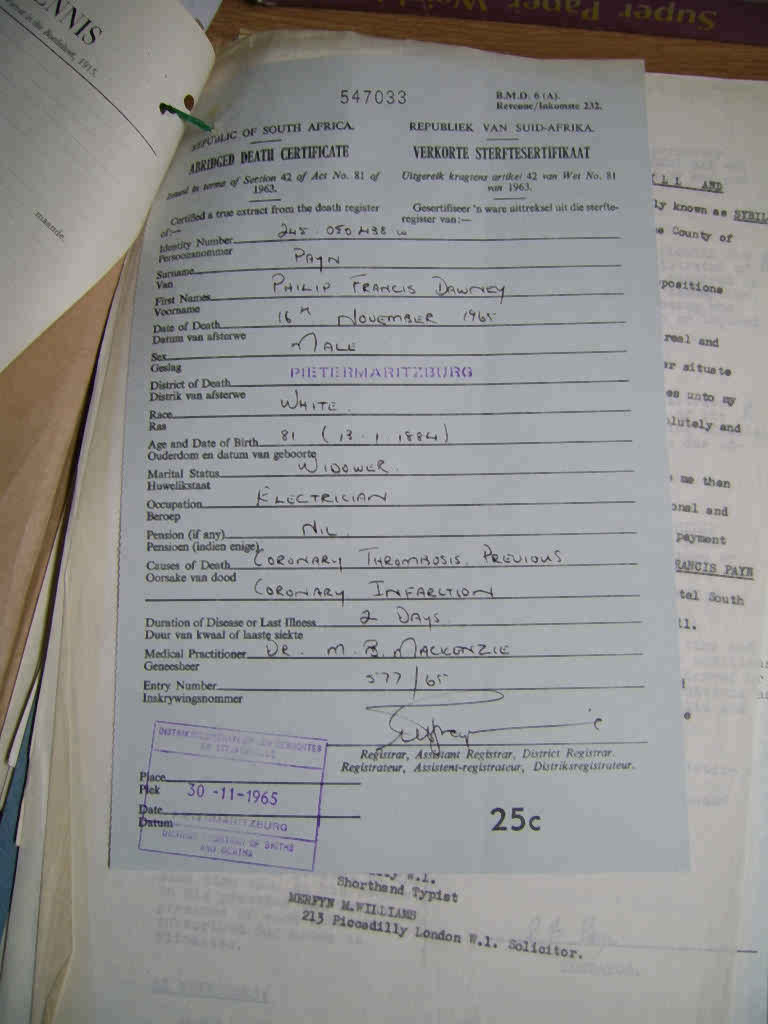 Super Paper
ENNIS
547033
B.M.D. 6 (A).
Revenue/Inkomste 232.
REPUBLIC OF SOUTH AFRICA.
REPUBLIEK VAN SUID-AFRIKA.
ABRIDGED DEATH CERTIFICATE
VERKORTE STERFTESERTIFIKAAT
Issued in terms of Section 42 of Act No. 81 of
1963.
Uitgereik kragtens artikel 42 van Wet No. 81
van 1963.
Certified a true extract from the death register
of:—
Gesertifiseer 'n ware uittreksel uit die sterfte-
register van:—
Identity Number 245. 050 438 w
Persoonsnommer
Surname PAYN
Van
First Names PHILIP FRANCIS DAWNEY
Voorname
Date of Death 16TH NOVEMBER 1965
Datum van afsterwe
Sex MALE
Geslag
District of Death PIETERMARITZBURG
Distrik van afsterwe
Race WHITE.
Ras
Age and Date of Birth 81 (13.1.1884)
Ouderdom en datum van geboorte
Marital Status WIDOWER.
Huwelikstaat
Occupation ELECTRICIAN
Beroep
Pension (if any) NIL.
Pensioen (indien enige)
Causes of Death CORONARY THROMBOSIS. PREVIOUS
Oorsake van dood CORONARY INFARCTION
Duration of Disease or Last Illness 2 DAYS.
Duur van kwaal of laaste siekte
Medical Practitioner DR. M. B. MACKENZIE
Geneesheer
Entry Number 577/65
Inskrywingsnommer
Registrar, Assistant Registrar, District Registrar.
Registrateur, Assistent-registrateur, Distriksregistrateur.
Place
Plek
30-11-1965
Date
Datum
PIETERMARITZBURG
AND DEATHS
25c
maande.
AND
ly known as SYBIL
County of
positions
real and
situate
es unto my
lutely and
me then
onal and
payment
FRANCIS PAYN
tal South
W.1.
Shorthand Typist
MERFYN M.WILLIAMS
213 Piccadilly London W.1. Solicitor.